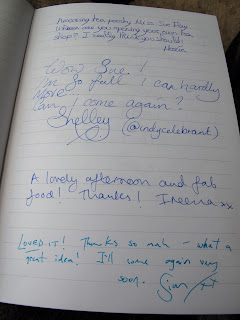 Amazing tea party Miss Sue Flay
where are you opening your own tea
shop? I really think you should.
Wow Sue!
I'm so full I can hardly
move!
Can I come again?
Shelley
X (@indycelebrant)
A lovely afternoon and fab
food! Thanks! Ineena xx
LOVED IT! Thanks so much - what a
great idea! I'll come again very
soon.
Sian xx